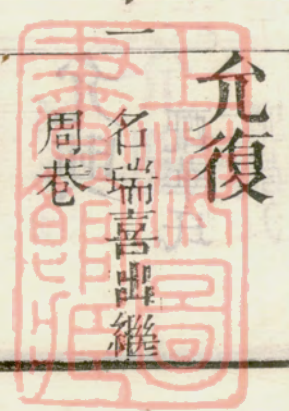 允復
名瑞喜出繼
周巷